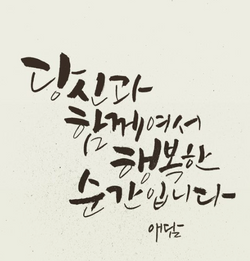 당신과
함께여서
행복한
순간입니다
애덤